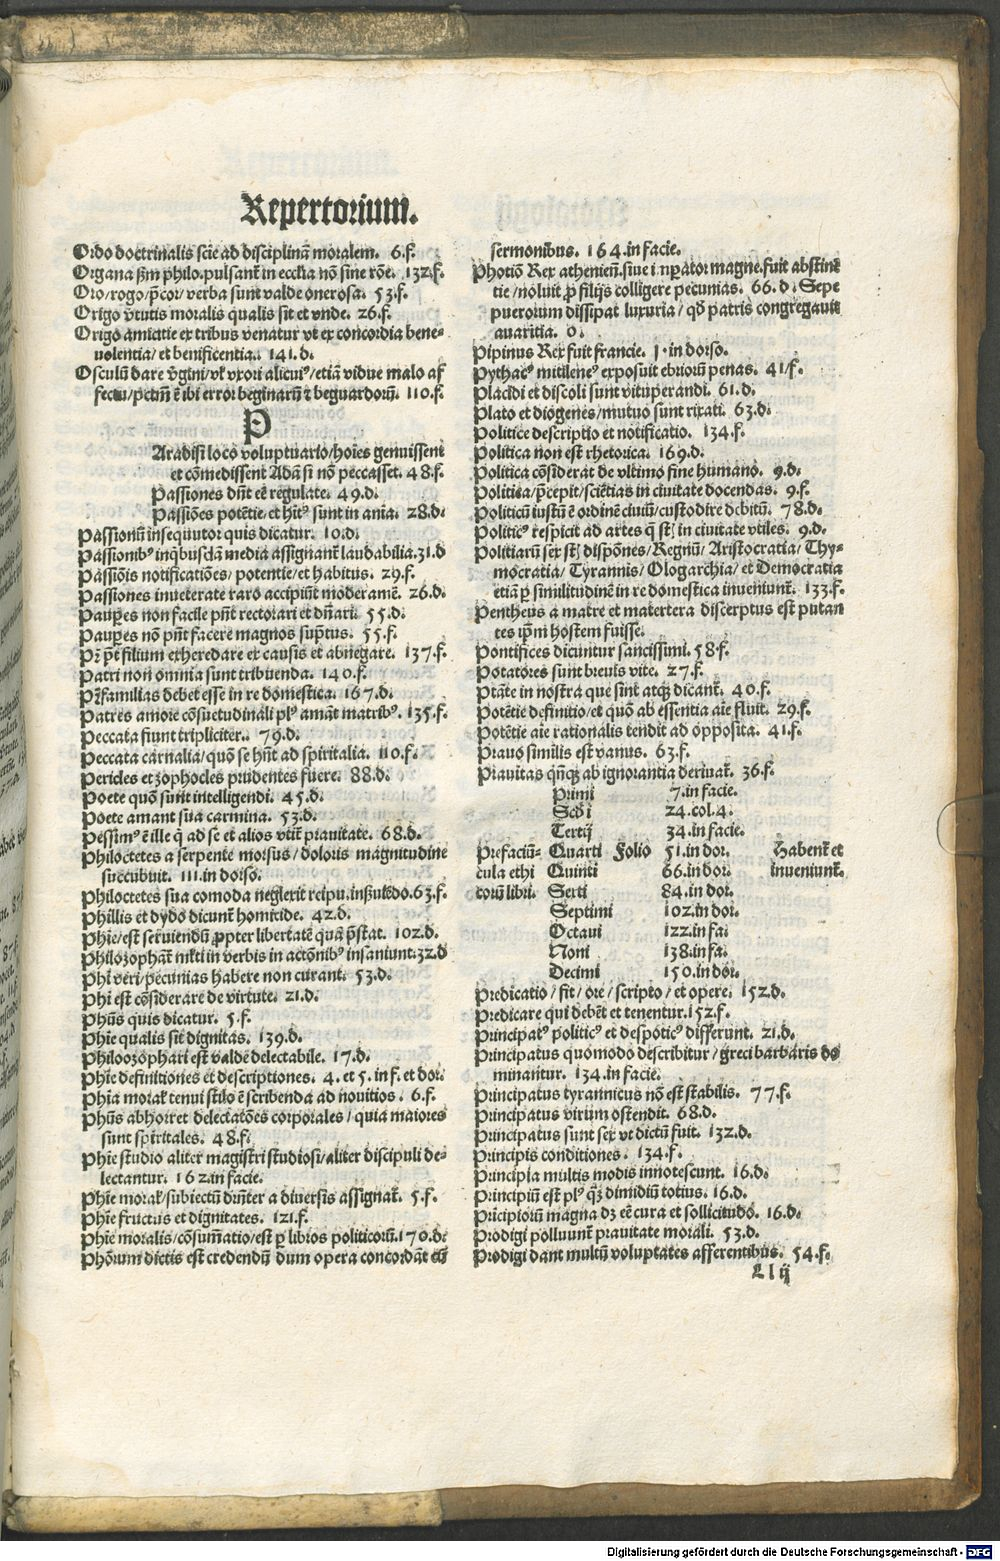 Repertorium.
Ordo doctrinalis scīe ad disciplinā moralem. 6.f.
Organa ẜm philo.pulsant̄ in eccłia nō sine rōe. 132.f.
Oro/rogo/p̄cor/verba sunt valde onerosa. 53.f.
Origo v̄tutis moralis qualis sit et vnde. 26.f.
Origo amicitie ex tribus venatur vt ex concordia bene⸗
uolentia/et benificentia.. 141.d.
Osculū dare v̄gini/vł vxori alicuiꝰ/etiā vidue malo af
fectu/pctm̄ ē ibi error beginarū ⁊ beguardorū. 110.f.
P
Aradisi loco voluptuario/hoīes genuissent
et cōmedissent Adā si nō peccasset. 48.f.
Passiones dn̄t eē regulate. 49.d.
Passiōes potētie et hītꝰ sunt in ania. 28.d.
Passionū insequutor quis dicatur. 10.d.
Passionibꝰ inq̇busdā media assignant̄ laudabilia.31.d
Passiōis notificatiōes/potentie/et habitus. 29.f.
Passiones inueterate raro accipiūt moderamē. 26.d.
Paupes non facile pn̄t rectorari et dn̄ari. 55.d.
Paupes nō pn̄t facere magnos sup̄tus. 55.f.
Pr̄ pt̄ filium exheredare ex causis et abnegare. 137.f.
Patri non omnia sunt tribuenda. 140.f.
Pr̄familias debet esse in re domestica. 167.d.
Patres amore cōsuetudinali plꝰ amāt matribꝰ. 135.f.
Peccata fiunt tripliciter.. 79.d.
Peccata carnalia/quō se hn̄t ad spiritalia. 110.f.
Pericles et zophocles prudentes fuere. 88.d.
Poete quō sunt intelligendi. 45.d.
Poete amant sua carmina. 53.d.
Pessimꝰ ē ille q̇ ad se et alios vtit̄ prauitate. 68.d.
Philoctetes a serpente morsus/doloris magnitudine
succubuit. 111.in dorso.
Philoctetes sua comoda neglexit reipu. 63.f.
Phillis et dydo dicunt̄ homicide. 42.d.
Phie/est seruiendū ꝓpter libertatē quā p̄stat. 102.d.
Philozophāt̄ in verbis in actōnibꝰ insaniunt.32.d
Phi veri/pecunias habere non curant. 53.d.
Phi est cōsiderare de virtute. 21.d.
Phūs quis dicatur. 5.f.
Phīe qualis sit dignitas. 139.d.
Philoozophari est valde delectabile. 17.d.
Phīe definitiones et descriptiones. 4. et 5. in f. et dor.
Phīa morał tenui stilo ē scribenda ad nouitios. 6.f.
Phūs abhorret delectatōes corporales/quia maiores
sunt spiritales. 48.f.
Phīe studio aliter magistri studiosi/aliter discipuli de⸗
lectantur. 162.in facie.
Phīe morał/subiectū a diuersis assignat̄. 5.f.
Phīe fructus et dignitates. 121.f.
Phīe moralis/cōsum̄atio/est ꝑ libros politicorū.170.d.
Phōrum dictis est credendū dum opera concordāt cū
sermonibus. 164.in facie.
Photiō Rex atheniēn.siue magne.fuit abstinē
tie/noluit ꝓ filijs colligere pecunias. 66.d. Sepe
puerorum dissipat luxuria/qd̄ patris congregauit
auaritia. 0.
Pipinus Rex fuit francie. 1.in dorso.
Pythacꝰ mitilenēꝰ exposuit ebriorū penas. 41/f.
Placidi et discoli sunt vituperandi. 61.d.
Plato et diogenes/mutuo sunt rixati. 63.d.
Politice descriptio et notificatio. 134.f.
Politica non est rhetorica. 169.d.
Politica cōsiderat de vltimo fine humano. 9.d.
Politica/p̄cepit/sciētias in ciuitate docendas. 9.f.
Politicū iustū ē ordinē ciuiū/custodire debitū. 78.d.
Politicꝰ respicit ad artes q̄ st̄ in ciuitate vtiles. 9.d.
Politiarū sex st̄ disp̄ōnes/Regnū/Aristocratia/Thy⸗
mocratia/Tyrannis/Ologarchia/et Democratia
etiā ꝑ similitudinē in re domestica inueniunt̄. 133.f.
Pentheus a matre et matertera discerptus est putan
tes ip̄m hostem fuisse.
Pontifices dicuntur sancissimi. 58.f.
Potatores sunt breuis vite. 27.f.
Ptāte in nostra que sint atqꝫ dicant̄. 40.f.
Potētie definitio/et quō ab essentia aīe fluit. 29.f.
Potētie aīe rationalis tendit ad opposita. 41.f.
Prauo similis est vanus. 63.f.
Prauitas qn̄qꝫ ab ignorantia deriuat̄. 36.f.
Primi 7.in facie.
Scd̄i 24.col.4.
Tertij 34.in facie.
Prefaciū⸗ Quarti Folio 51.in dor. Habent̄ et
cula ethi Quinti 66.in dor. inueniunt̄.
corū libri. Sexti 84.in dor.
Septimi 102.in dor.
Octaui 122.in fa.
Noni 138.in fa.
Decimi 150.in dor.
Predicatio/fit/ore/scripto/et opere. 152.d.
Predicare qui debēt et tenentur.152.f.
Principatꝰ politicꝰ et despoticꝰ differunt. 21.d.
Principatus quomodo describitur/greci barbaris do
minantur. 134.in facie.
Principatus tyrannicus nō est stabilis. 77.f.
Principatus virum ostendit. 68.d.
Principatus sunt sex vt dictū fuit. 132.d.
Principis conditiones. 134.f.
Principia multis modis innotescunt. 16.d.
Principiū est plꝰ qꝫ dimidiū totius. 16.d.
Prīcipiorū magna dꝫ eē cura et sollicitudo. 16.d.
Prodigi polluunt̄ prauitate morali. 53.d.
Prodigi dant multū voluptates afferentibus. 54.f.
Ll ij
Digitalisierung gefördert durch die Deutsche Forschungsgemeinschaft - DFG